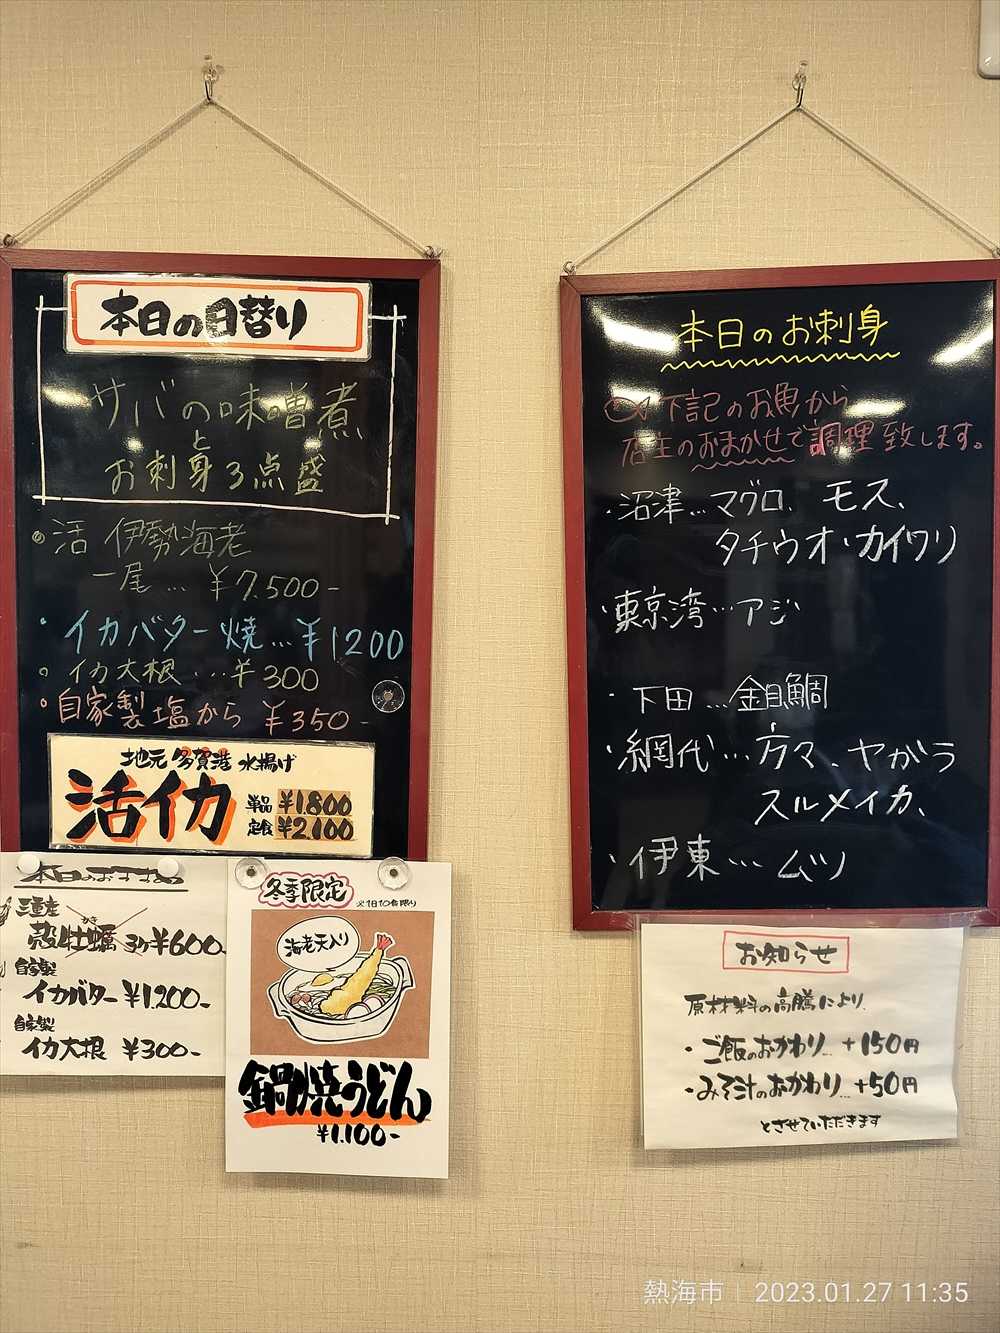 本日の日替り
サバの味噌煮
と
お刺身3点盛
活 伊勢海老
一尾…¥7.500-
・イカバター焼…¥1200
イカ大根…¥300
自家製塩から ¥350-
地元 多賀港 水揚げ
活イカ
単品 ¥1.800
定食 ¥2.100
本日のおすすめ
三重産
かき
殻牡蠣 3ヶ¥600-
自家製
イカバター ¥1.200-
自家製
イカ大根 ¥300-
冬季限定
※1日10食限り
海老天入り
鍋焼うどん
¥1.100-
本日のお刺身
下記のお魚から
店主のおまかせで調理致します。
・沼津…マグロ、モス、
タチウオ・カイワリ
・東京湾…アジ
・下田…金目鯛
・網代…カマ、ヤガラ
スルメイカ、
・伊東…ムツ
お知らせ
原材料の高騰により、
・ご飯のおかわり…+150円
・みそ汁のおかわり…+50円
とさせていただきます
熱海市 | 2023.01.27 11:35